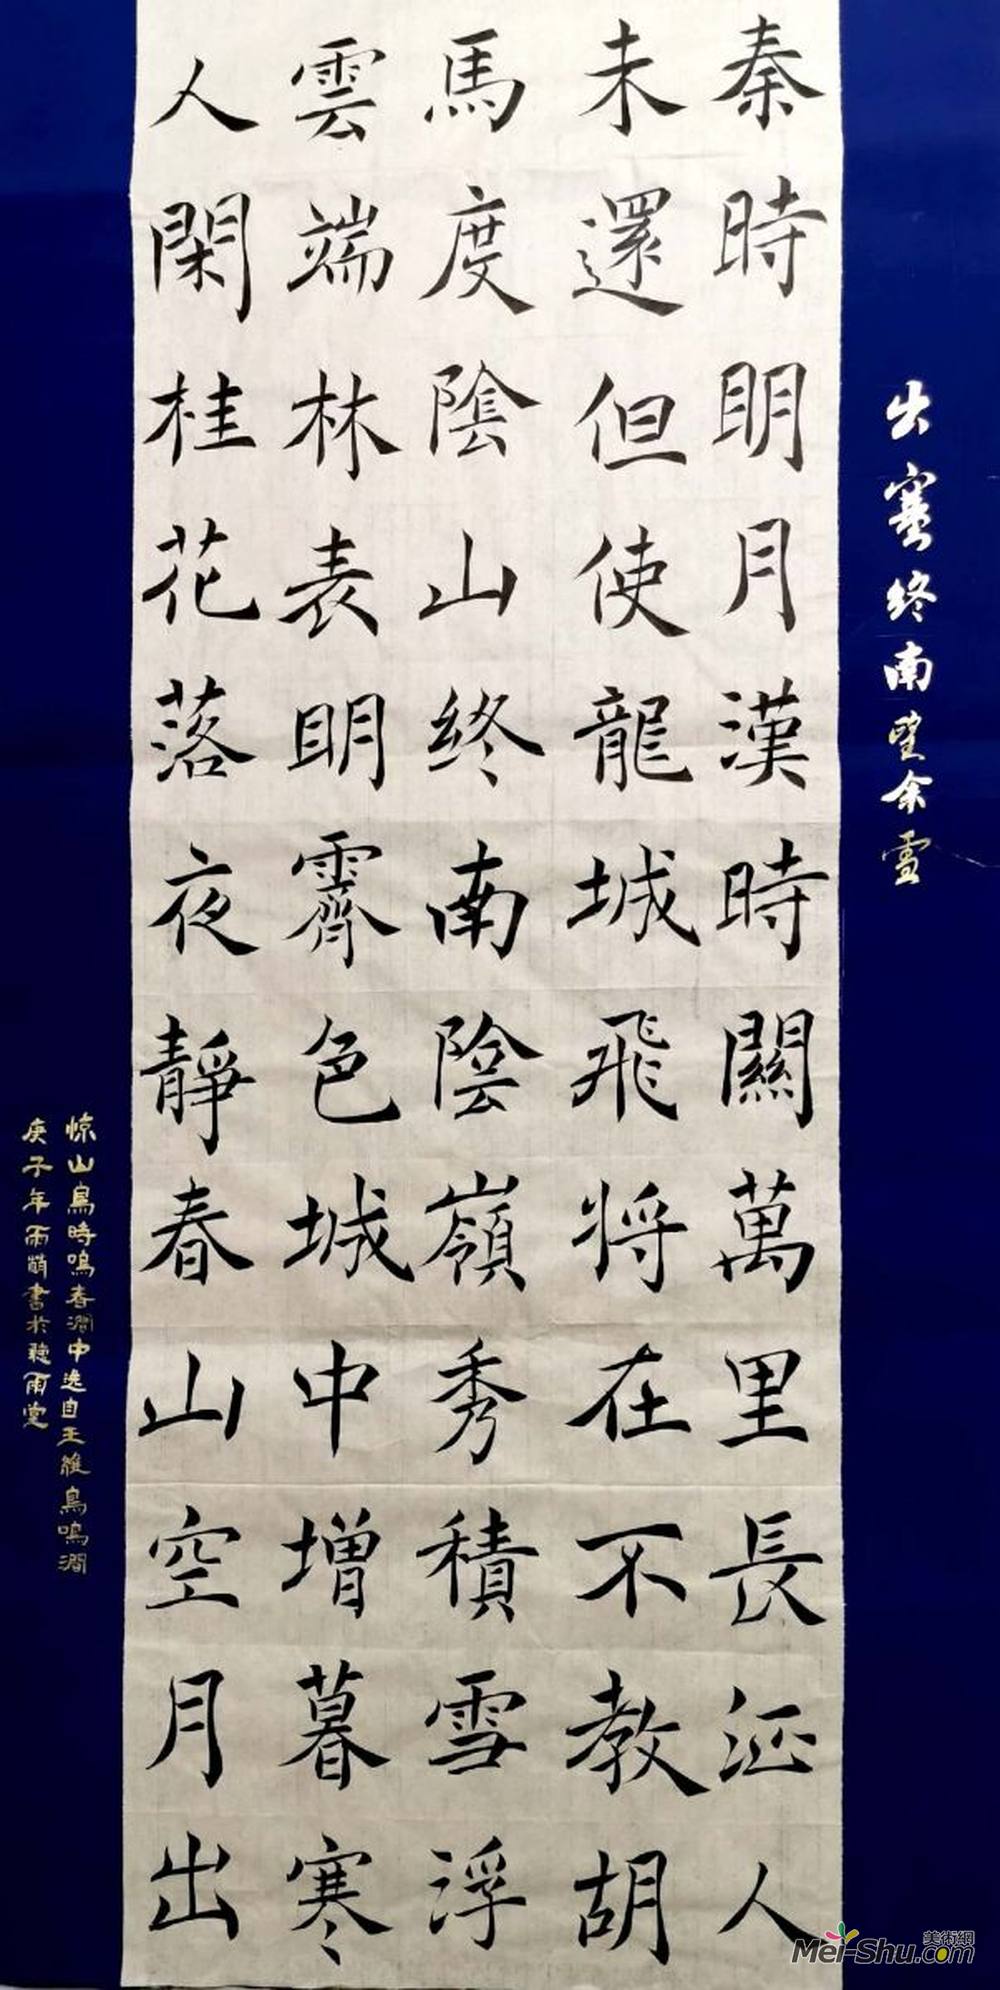 出塞终南望余雪
秦時明月漢時關萬里長征人
未還但使龍城飛将在不教胡
馬度陰山终南陰嶺秀積雪浮
雲端林表明霽色城中增暮寒
人閑桂花落夜靜春山空月出
惊山鳥時鳴春澗中选自王維鳥鳴澗
庚子年雨萌書於聽雨堂
美術網
Mei-Shu.com